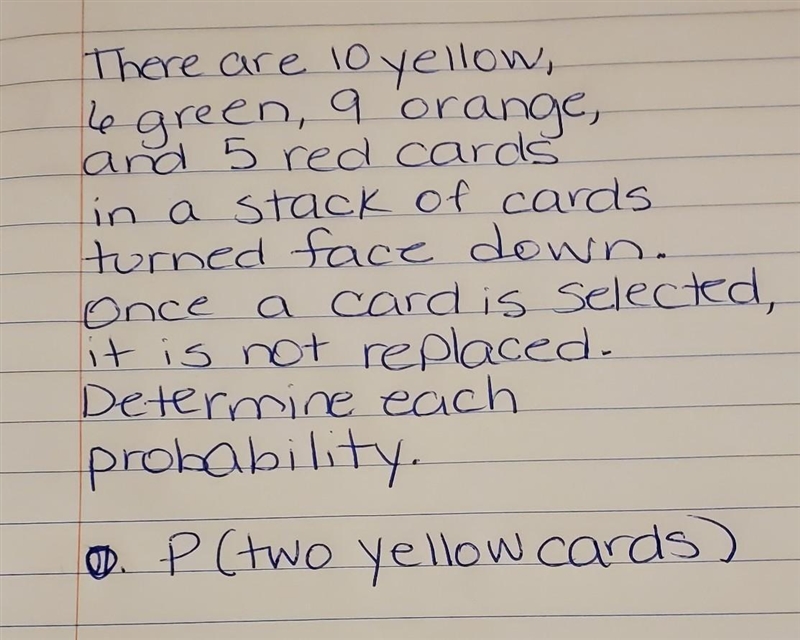 There are 10 yellow,
6 green, 9 orange,
and 5 red cards
in a stack of cards
turned face down.
Once a card is selected,
it is not replaced.
Determine each
probability.
. P (two yellow cards)